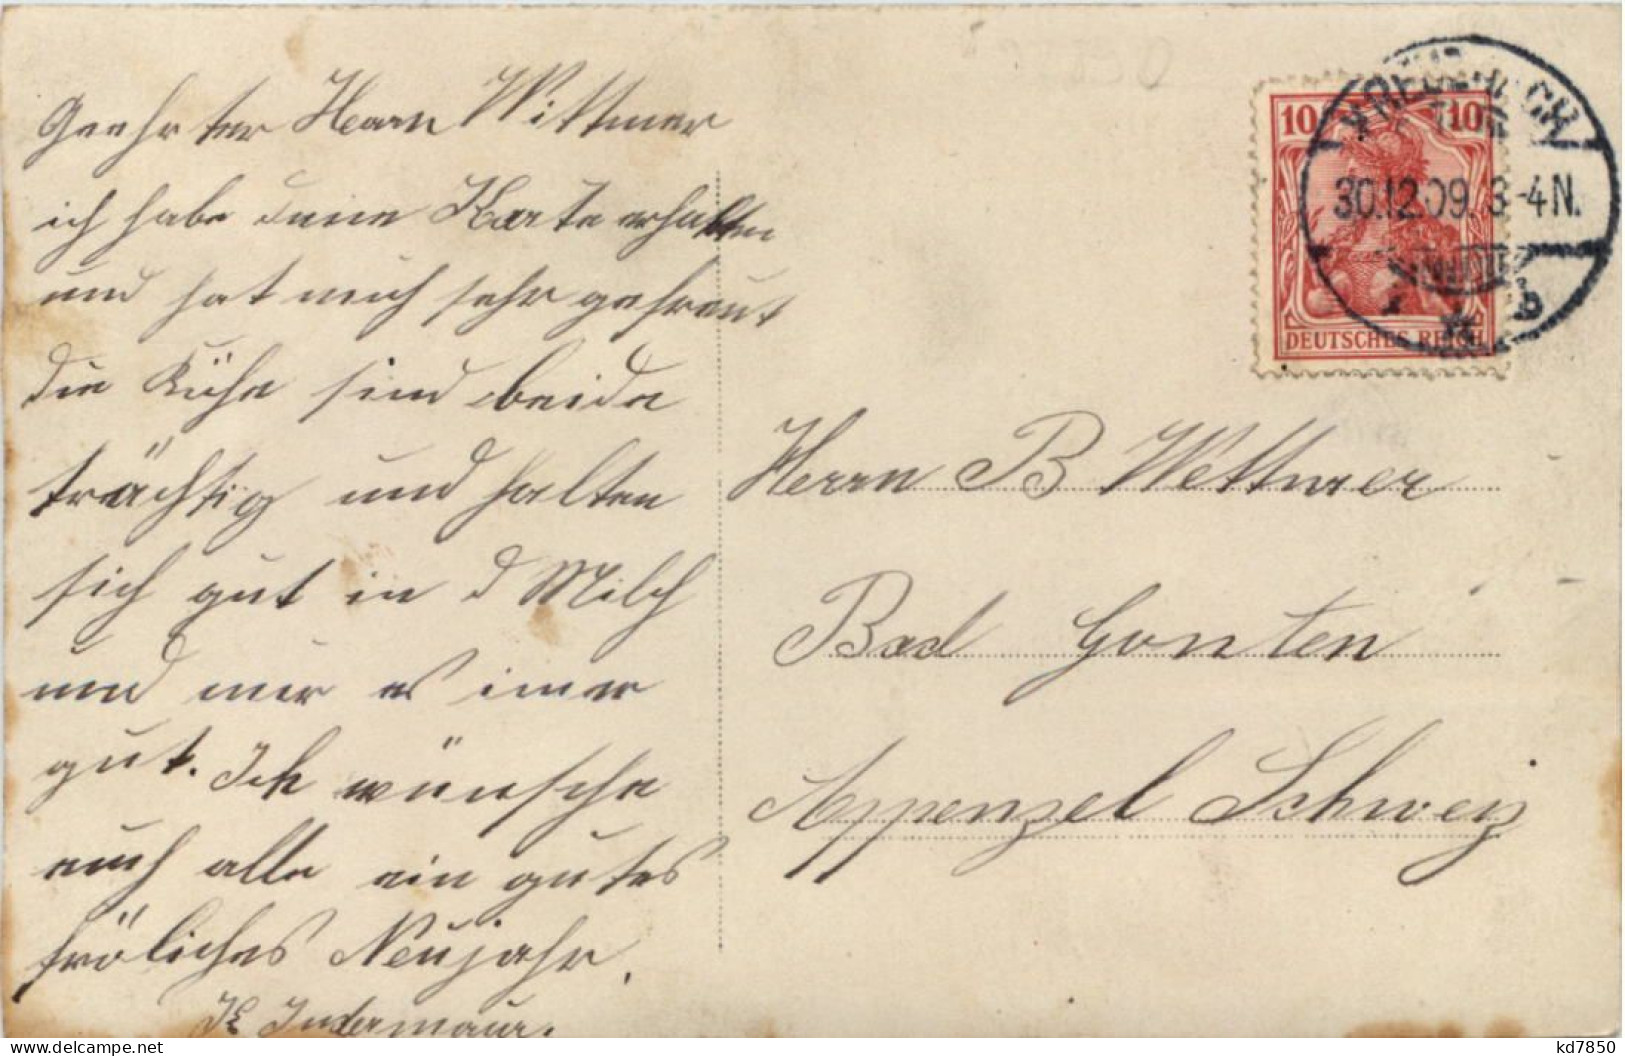 Geehrter Herrn Wittmer
ich habe deine Karte erhalten
und hat mich sehr gefreut
die Kühe sind beide
trächtig und halten
sich gut in d Milch
und mir es imer
gut. Ich wünsche
euch alle ein gutes
fröliches Neujahr.
K Indermaur.
10 10
DEUTSCHES REICH
30.12.09. 3-4N.
b
Herrn B Wittmer
Bad Gonten
Appenzel Schweiz
kd7850